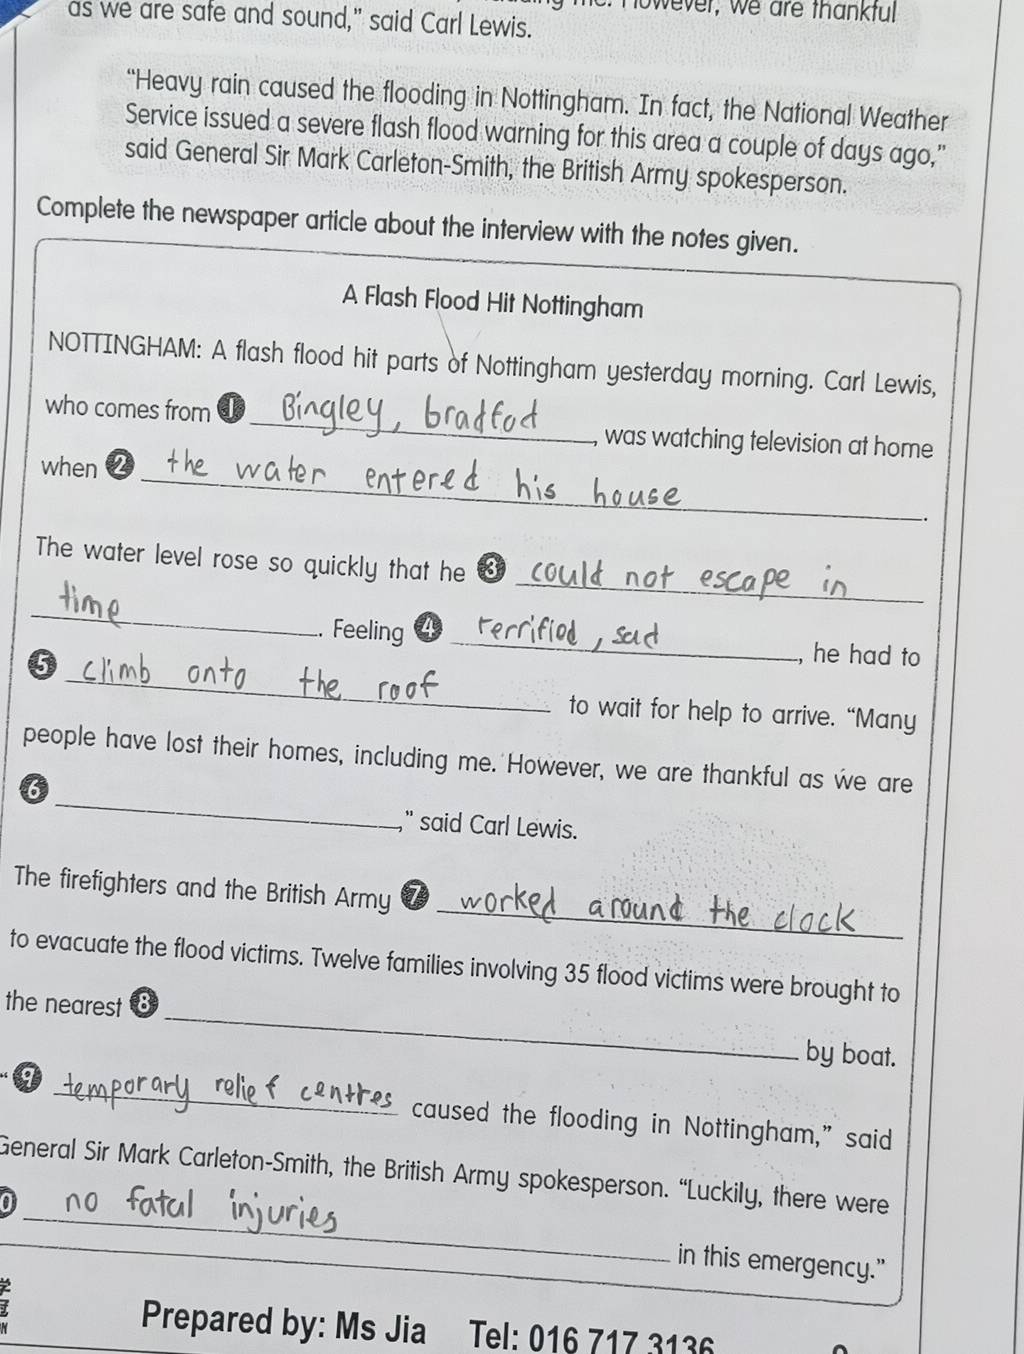 as we are safe and sound," said Carl Lewis. me. However, we are thankful
"Heavy rain caused the flooding in Nottingham. In fact, the National Weather
Service issued a severe flash flood warning for this area a couple of days ago,"
said General Sir Mark Carleton-Smith, the British Army spokesperson.
Complete the newspaper article about the interview with the notes given.
A Flash Flood Hit Nottingham
NOTTINGHAM: A flash flood hit parts of Nottingham yesterday morning. Carl Lewis,
who comes from 1 Bingley, bradfod, was watching television at home
when 2 the water entered his house.
The water level rose so quickly that he 3 could not escape in
time. Feeling 4 rerrified, sad, he had to
5 climb onto the roof to wait for help to arrive. "Many
people have lost their homes, including me. However, we are thankful as we are
6 ," said Carl Lewis.
The firefighters and the British Army 7 worked around the clock
to evacuate the flood victims. Twelve families involving 35 flood victims were brought to
the nearest 8 by boat.
"9 temporary relief centres caused the flooding in Nottingham," said
General Sir Mark Carleton-Smith, the British Army spokesperson. "Luckily, there were
0 no fatal injuries in this emergency."
Prepared by: Ms Jia Tel: 016 717 3136